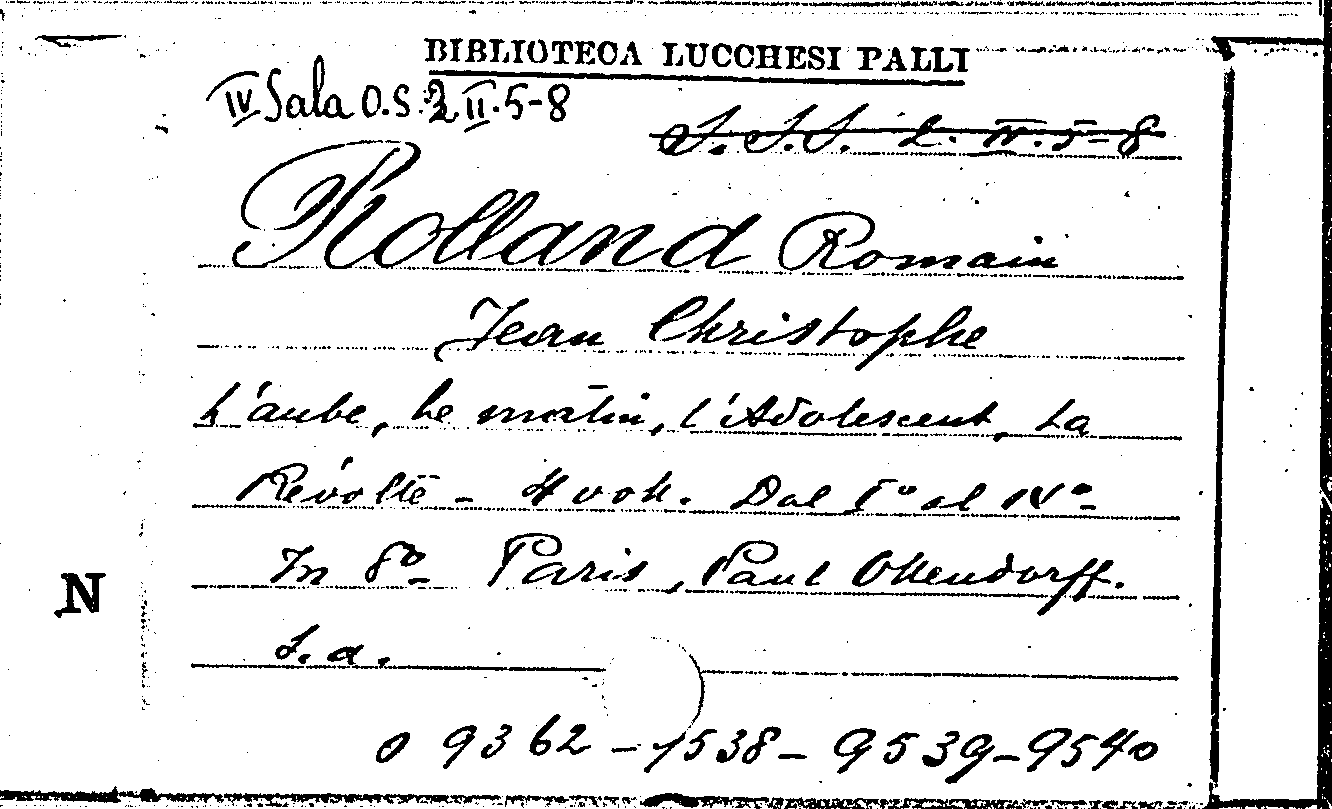 BIBLIOTECA LUCCHESI PALLI
IV Sala O.S. 2 II. 5-8
S.S.S. 2. IV. 5-8
Rolland Romain
Jean Christophe
L'aube, Le matin, l'Adolescent, La
Révolte - 4 voll. Dal I° al IV°
In 8° Paris, Paul Ollendorff.
S. a.
N
0 9362 - 9538 - 9539 - 9540